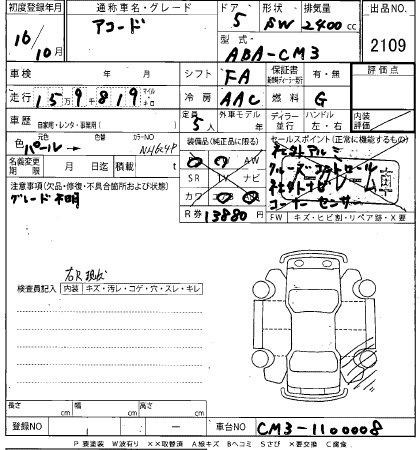 初度登録年月 通称車名・グレード ドア 形状 排気量 出品NO
16/10月 アコード 5 SW 2400cc 2109
型式 ABA-CM3
車検 年 月 シフト FA 保証書 有・無 評価点
走行 159819 マイル キロ 冷房 AAC 燃料 G
車歴 自家用・レンタ・事業用( ) 定員 5人 外車モデル 年 ディーラー 並行 ハンドル 左・右 内装評価
色 元色 パール → 色替 カラーNO NH624P 装備品(純正品に限る) セールスポイント(正常に機能するもの)
名義変更期限 月 日迄 積載 t AW 社外アルミ
SR ナビ クルーズコントロール
注意事項(欠品・修復・不具合箇所および状態) カワ 社外ナビ
グレード不明 コーナーセンサー
R券 13880 FW キズ・ヒビ割・リペア跡・X要
検査員記入 内装 キズ・汚レ・コゲ・穴・スレ・キレ
長さ cm 幅 cm 高さ cm
登録NO — 車台NO CM3-1100008
P 要塗装 W波有り ××取替済 A線キズ Bヘコミ Sさび ×要交換 C腐食